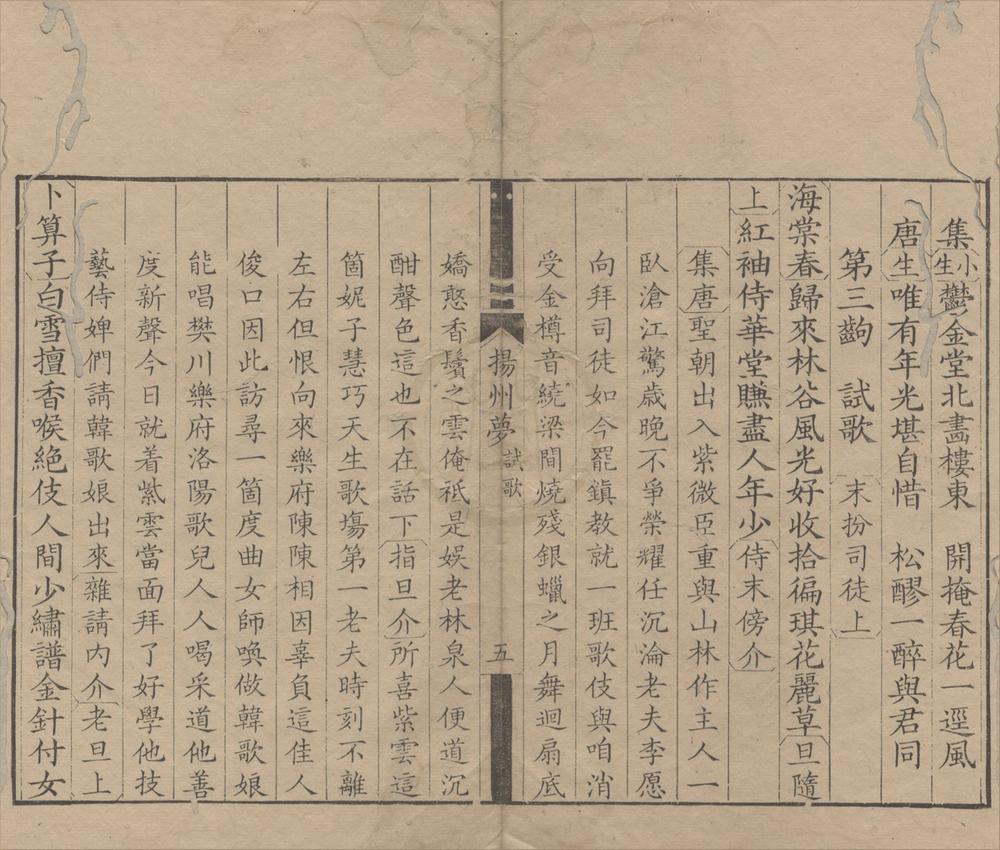 集小生鬱金堂北畵樓東　開掩春花一逕風
唐生唯有年光堪自惜　松醪一醉與君同
第三齣　試歌　末扮司徒上
海棠春歸來林谷風光好收拾徧琪花麗草旦隨
上紅袖侍華堂賺盡人年少侍末傍介
集唐聖朝出入紫微臣重與山林作主人一
臥滄江驚歲晚不爭榮耀任沉淪老夫李愿
向拜司徒如今罷鎮教就一班歌伎與咱消
受金樽音繞梁間燒殘銀蠟之月舞迴扇底
揚州夢　試歌　五
嬌憨香鬢之雲俺祇是娛老林泉人便道沉
酣聲色這也不在話下指旦介所喜紫雲這
箇妮子慧巧天生歌塲第一老夫時刻不離
左右但恨向來樂府陳陳相因辜負這佳人
俊口因此訪尋一箇度曲女師喚做韓歌娘
能唱樊川樂府洛陽歌兒人人喝采道他善
度新聲今日就着紫雲當面拜了好學他技
藝侍婢們請韓歌娘出來雜請內介老旦上
卜算子白雪擅香喉絕伎人間少繡譜金針付女